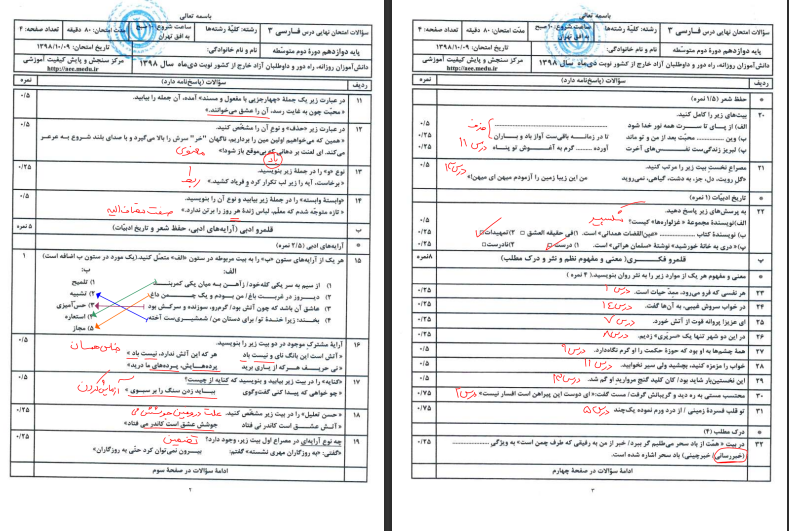 باسمه تعالی
سؤالات امتحان نهایی درس فارسی ۳
رشته: کلیّهٔ رشته‌ها
ساعت شروع: ۱۰ صبح به افق تهران
مدت امتحان: ۸۰ دقیقه
تعداد صفحه: ۴
پایه دوازدهم دورهٔ دوم متوسّطه
نام و نام خانوادگی:
تاریخ امتحان: ۱۳۹۸/۱۰/۰۹
دانش‌آموزان روزانه، راه دور و داوطلبان آزاد خارج از کشور نوبت دی‌ماه سال ۱۳۹۸
مرکز سنجش و پایش کیفیت آموزشی
http://aee.medu.ir
ردیف
سؤالات (پاسخ‌نامه دارد)
نمره
۱۱ در عبارت زیر یک جملهٔ «چهارجزیی با مفعول و مسند» آمده، آن جمله را بیابید. ۰/۵
«محبّت چون به غایت رسد، آن را عشق می‌خوانند.»
۱۲ در عبارت زیر «حذف» و نوع آن را مشخّص کنید. ۰/۵
«همین که می‌خواهیم اولین مین را برداریم، ناگهان "خر" سرش را بالا می‌گیرد و با صدای بلند شروع به عرعر
می‌کند. ای لعنت بر دهانی که بی‌موقع باز شود!»
باد
معنوی
۱۳ نوع «و» را در جملهٔ زیر بنویسید. ۰/۲۵
«برخاست، آیه را زیر لب تکرار کرد و فریاد کشید.»
ربط
۱۴ «وابستهٔ وابسته» را در جملهٔ زیر بیابید و نوع آن را بنویسید. ۰/۵
«تازه متوجّه شدم که معلّم، لباس زندهٔ هر روز را برتن ندارد.»
صفت مضاف الیه
ب قلمرو ادبی (آرایه‌های ادبی، حفظ شعر و تاریخ ادبیّات) ۵ نمره
* آرایه‌های ادبی (۲/۵ نمره)
۱۵ هر یک از آرایه‌های ستون «ب» را به بیت مربوطه در ستون «الف» متصّل کنید.(یک مورد در ستون ب اضافه است) ۱
الف:
ب:
۱) از سیم به سر یکی کله‌خود/ زآهن به میان یکی کمربند
۱) تلمیح
۲) دیـروز در غربت باغ/ من بودم و یک چـمن داغ
۲) تشبیه
۳) عاشق آن باشد که چون آتش بود/ گرم‌رو، سوزنده و سرکش بود
۳) حس‌آمیزی
۴) بخنـد: زیرا خندهٔ تو/ برای دستان من/ شمشیری‌ست آخته
۴) استعاره
۵) مجاز
۱۶ آرایهٔ مشترک موجود در دو بیت زیر را بنویسید. ۰/۵
جناس همسان
«آتش است این بانگ نای و نیست باد هر که این آتش ندارد، نیست باد»
«نی حریـف هـرکه از یاری برید پرده‌هـایش، پرده‌های ما درید»
۱۷ «کنایه» را در بیت زیر بیابید و بنویسید که کنایه از چیست؟ ۰/۵
«چو خواهی که پیدا کنی گفت‌وگوی ببـاید زدن سنگ را بر سبوی»
آزمایش کردن
۱۸ «حسن تعلیل» را در بیت زیر مشخّص کنید. ۰/۲۵
«آتـش عشـق است کاندر نی فتاد جوشش عشق است کاندر می فتاد»
۱۹ چه نوع آرایه‌ای در مصراع اول بیت زیر، وجود دارد؟ ۰/۲۵
تضمین
«گفتی: «به روزگاران مهری نشسته» گفتم: بیـرون نمی‌توان کرد حتّی به روزگاران»
ادامهٔ سؤالات در صفحهٔ سوم
۲
باسمه تعالی
سؤالات امتحان نهایی درس فارسی ۳
رشته: کلیّهٔ رشته‌ها
ساعت شروع: ۱۰ صبح به افق تهران
مدت امتحان: ۸۰ دقیقه
تعداد صفحه: ۴
پایه دوازدهم دورهٔ دوم متوسّطه
نام و نام خانوادگی:
تاریخ امتحان: ۱۳۹۸/۱۰/۰۹
دانش‌آموزان روزانه، راه دور و داوطلبان آزاد خارج از کشور نوبت دی‌ماه سال ۱۳۹۸
مرکز سنجش و پایش کیفیت آموزشی
http://aee.medu.ir
ردیف
سؤالات (پاسخ‌نامه دارد)
نمره
* حفظ شعر (۱/۵ نمره)
۲۰ بیت‌های زیر را کامل کنید.
الف) از پـای تا سـرت همه نور خدا شود ۰/۵
ب) وین ......... محبّت بعد از من و تو ماند تا در زمانـه باقی‌ست آواز باد و بـاران ۰/۲۵
پ) لبریز زندگی‌ست نفـس‌های آخرت آورده ........ گرم به آغـوش تو پنـاه ۰/۲۵
حذف
درس ۱۱
۲۱ مصراع نخست بیت زیر را مرتب کنید. ۰/۵
«گل، رویت، دل، جز، به دشت، گیاهی، نمی‌روید من این زیبا زمین را آزمودم میهن ای میهن!»
* تاریخ ادبیّات (۱ نمره)
۲۲ به پرسش‌های زیر پاسخ دهید.
الف)نویسندهٔ مجموعهٔ «غزلواره‌ها» کیست؟ ۰/۵
شکسپیر
ب) نویسندهٔ کتاب ........ «عین‌القضات همدانی» است. ۱)فی حقیقه العشق ۲)تمهیدات ۰/۲۵
پ)« دری به خانهٔ خورشید» نوشتهٔ «سلمان هراتی» است. ۱)درست ۲)نادرست ۰/۲۵
پ قلمرو فکـری(معنی و مفهوم نظم و نثر و درک مطلب) ۸نمره
* معنی و مفهوم هر یک از موارد زیر را به نثر روان بنویسید.( ۴ نمره )
۲۳ هر نفسی که فرو می‌رود، ممدّ حیات است. درس ۱ ۰/۲۵
۲۴ در خواب سروش غیبی، به آن‌ها گفت. درس ۱۴ ۰/۲۵
۲۵ ای عزیز! پروانه قوت از آتش خورد. درس ۷ ۰/۲۵
۲۶ در این دو شهر تنها یک «سربَری» زدیم. درس ۸ ۰/۲۵
۲۷ همهٔ چشم‌ها به او بود که حوزهٔ حکمت را او گرم نگاه‌دارد. درس ۹ ۰/۵
۲۸ خواب را مزمزه کنید، بچشید ولی سیر نخوابید. درس ۱۱ ۰/۵
۲۹ این نخستین‌بار شاید بود/ کان کلید گنج مروارید او گم شد. درس ۱۳ ۰/۵
۳۰ محتسب مستی به ره دید و گریبانش گرفت/ مست گفت:«ای دوست این پیراهن است افسار نیست» درس ۲ ۰/۷۵
۳۱ تو قلب فسردهٔ زمینی / از درد ورم نموده یک‌چند درس ۵ ۰/۷۵
* درک مطلب (۴)
۳۲ در بیت «همّت از باد سحر می‌طلبم گر ببرد/ خبر از من به رفیقی که طرف چمن است» به ویژگی ......... ۰/۲۵
(خبررسانی/ خبرچینی) باد سحر اشاره شده است.
ادامهٔ سؤالات در صفحهٔ چهارم
۳